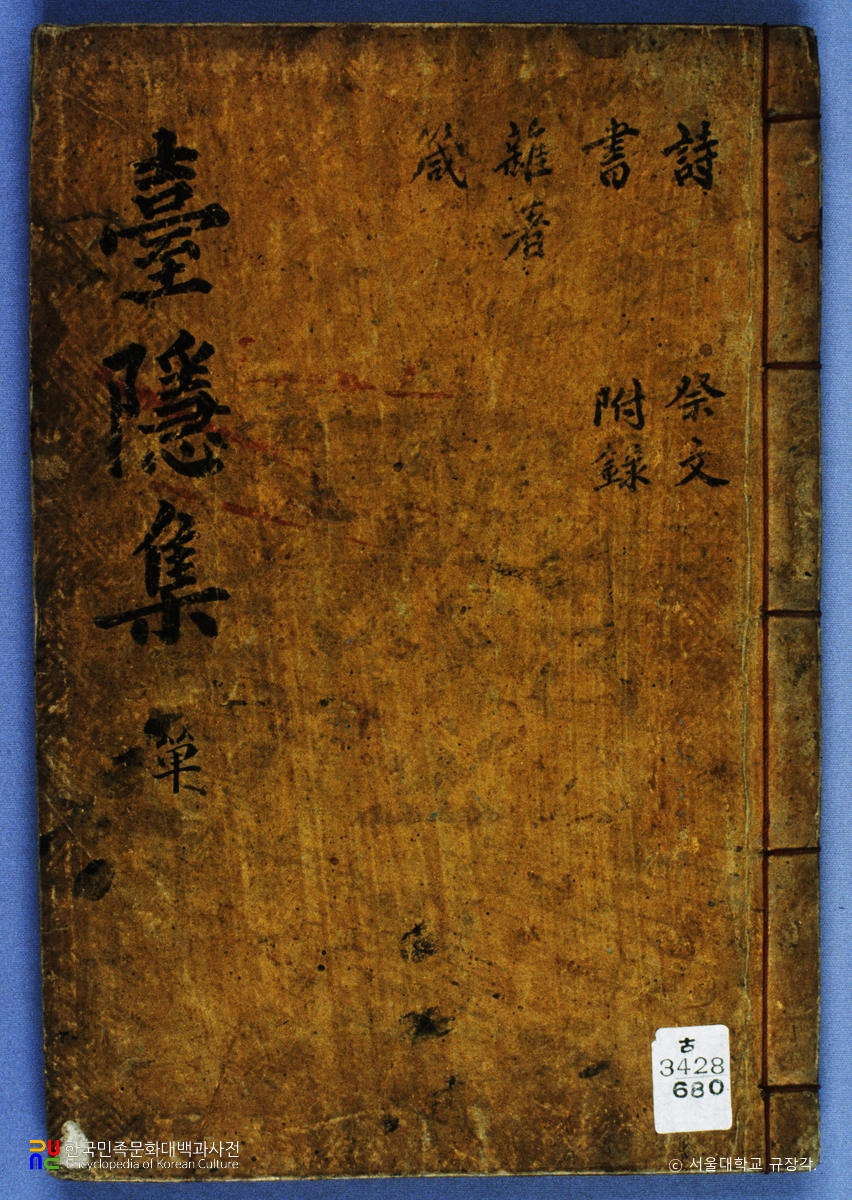 詩
書
雜著
箴
祭文
附錄
臺隱集 單
古
3428
680
한국민족문화대백과사전
Encyclopedia of Korean Culture
© 서울대학교 규장각.